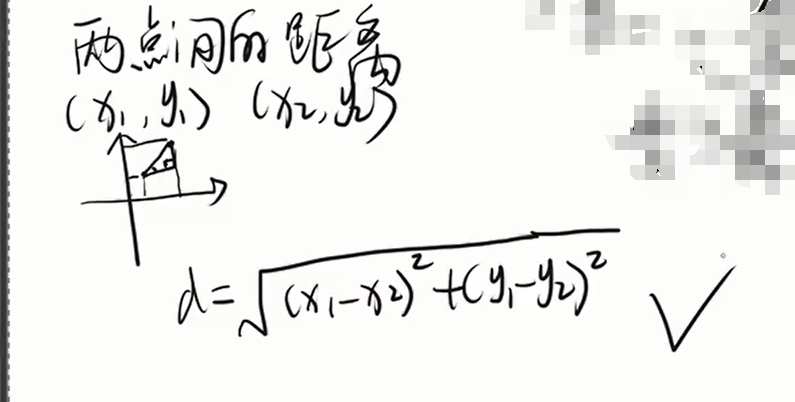 两点间的距离
(x₁, y₁) (x₂, y₂)
d=√(x₁-x₂)²+(y₁-y₂)²